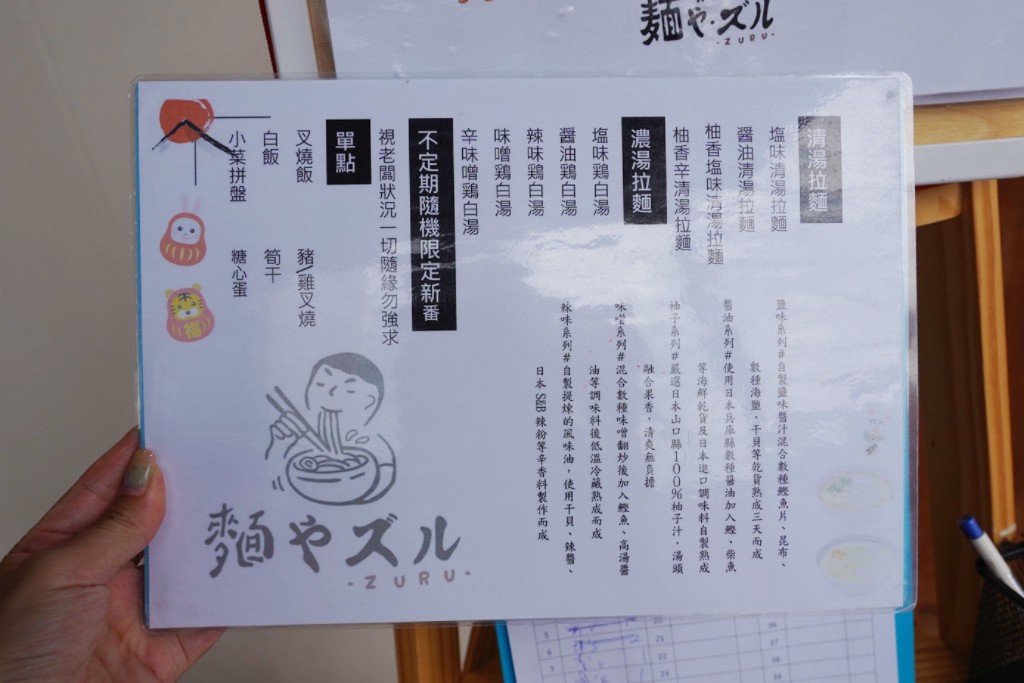 麵やズル
-ZURU-
清湯拉麵
塩味清湯拉麵
醤油清湯拉麵
柚香塩味清湯拉麵
柚香辛清湯拉麵
濃湯拉麵
塩味鶏白湯
醤油鶏白湯
辣味鶏白湯
味噌鶏白湯
辛味噌鶏白湯
不定期隨機限定新番
視老闆狀況一切隨緣勿強求
單點
叉燒飯 豬\雞叉燒
白飯 筍干
小菜拼盤 糖心蛋
鹽味系列#自製鹽味醬汁混合數種鰹魚片、昆布、
數種海鹽、干貝等乾貨熟成三天而成
醬油系列#使用日本兵庫縣數種醬油加入鰹、柴魚
等海鮮乾貨及日本進口調味料自製熟成
柚子系列#嚴選日本山口縣100%柚子汁，湯頭
融合果香，清爽無負擔
味噌系列#混合數種味噌翻炒後加入鰹魚、高湯醬
油等調味料後低溫冷藏熟成而成
辣味系列#自製提煉的風味油，使用干貝、辣醬、
日本S&B辣粉等辛香料製作而成
福
麵やズル
-ZURU-
5
6
7
20
21
22
23
36
37
38
39